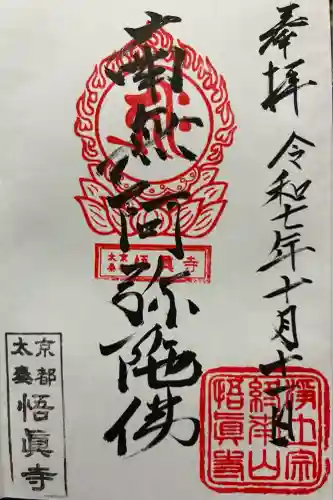 奉拝
令和七年十月十一日
南無阿弥陀佛
京都
太秦
悟眞寺
太秦
悟眞寺
浄土宗
悟眞寺